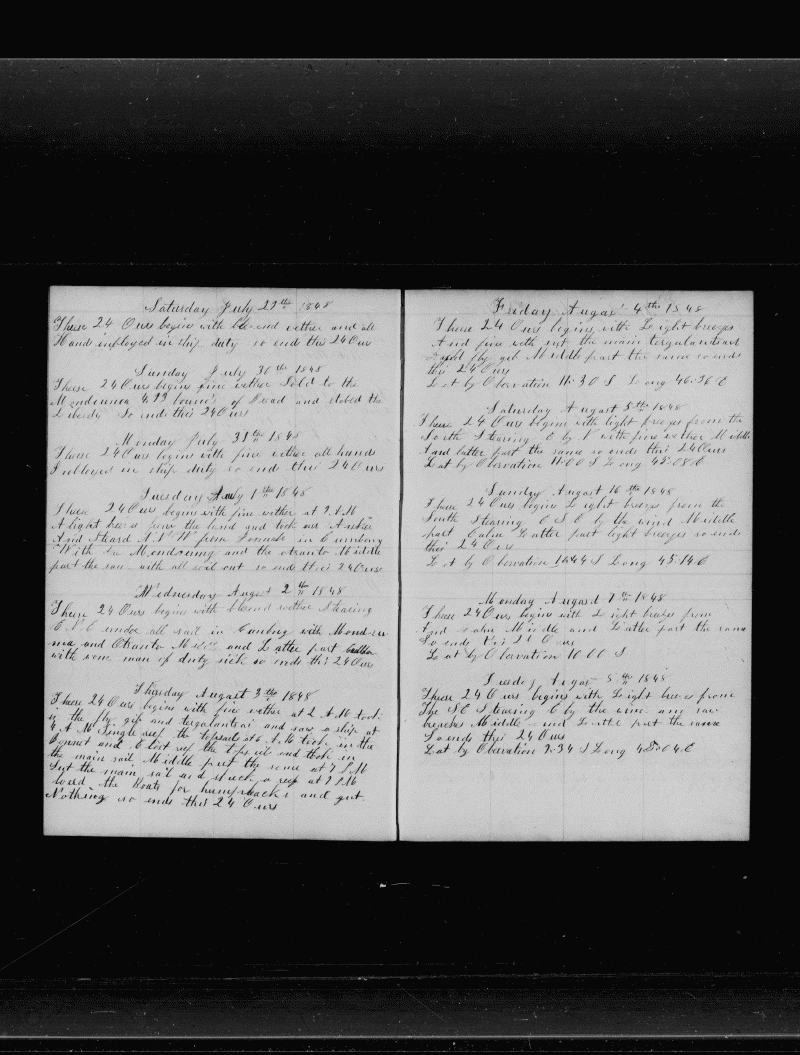 Saturday July 29th 1848
These 24 Ours begin with blesend wether and all
Hands imployed in ship duty so ends this 24 Ours
Sunday July 30th 1848
These 24 Ours begins fine wether Sold to the
Mendeunea 413 of Bread and the
Liberty So ends this 24 Ours
Monday July 31th 1848
These 24 Ours begins with fine wether all hands
Imployed in ship duty so end this 24 Ours
Tuesday 1the 1848
These 24 Ours begins with fine wether at 9 P M
A light breese from the land and took our Anker
And Steard N N W from in Cumbany
With the and the otranto Middle
part the same with all sail out so ends this 24 Ours
Wednesday August 2th 1848
These 24 Ours begins with blesend wether Stearing
E N E under all sail in Cumbny with Mond
ma and Otranto Middle and Latter part
with some man of duty sick so ends this 24 Ours
Thursday Augast 3the 1848
These 24 Ours begins with fine wether at 2 A M took
in the fly gib and tergalantsai and saw a ship at
4 A M Single reef the topsails at 6 A M took in the
and Clost reef the topsail and took in
the main sail Middle part the same at 7 P M
Sut the main sail and a reef at 9 P M
the Boats for humpbacks and gut
Nothing so ends this 24 Ours
Friday Augast 4the 1848
These 24 Ours begins with Light breezes
And fine weth sut the main tergalandsail
and fly geb Middle part the same so ends
this 24 Ours
Lat by Obervation 11.30 S Long 46.36 E
Saturday August 5th 1848
These 24 Ours begins with light breezes from the
South Stearing E by N with fine wether Middle
And latter part the same so ends this 24 Ours
Lat by Obervation 11.00 S Long 45.08 E
Sunday August 16the 1848
These 24 Ours begins Light breezes from the
South Stearing E S E by the wind Middle
part Calm Latter part light breezes so ends
this 24 Ours
Lat by Obervation 10.44 S Long 45.14 E
Monday Augast 7the 1848
These 24 Ours begins with Light breezes from
And calm Middle and Latter part the same
So ends this 24 Ours
Lat by Obervation 10.00 S
Tuesday August 8the 1848
These 24 Ours begins with Light breezes from
The S E Stearing E by the wind
breezes Middle and Latter part the same
So ends this 24 Ours
Lat by Obervation 9.34 S Long 45.04 E